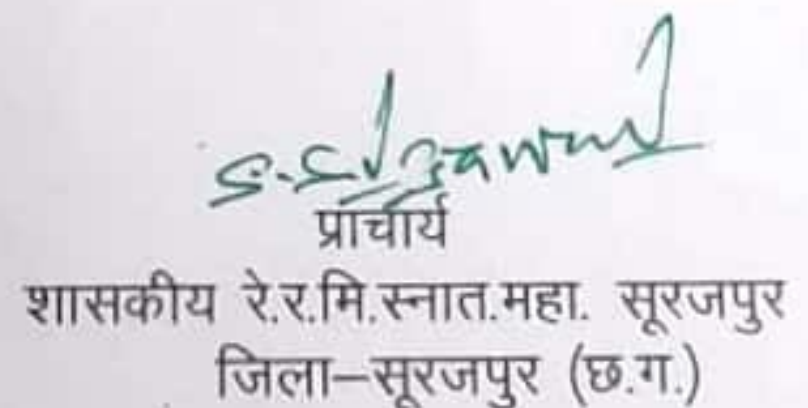 S.S. Agrawal
प्राचार्य
शासकीय रे.र.मि.स्नात.महा. सूरजपुर
जिला–सूरजपुर (छ.ग.)